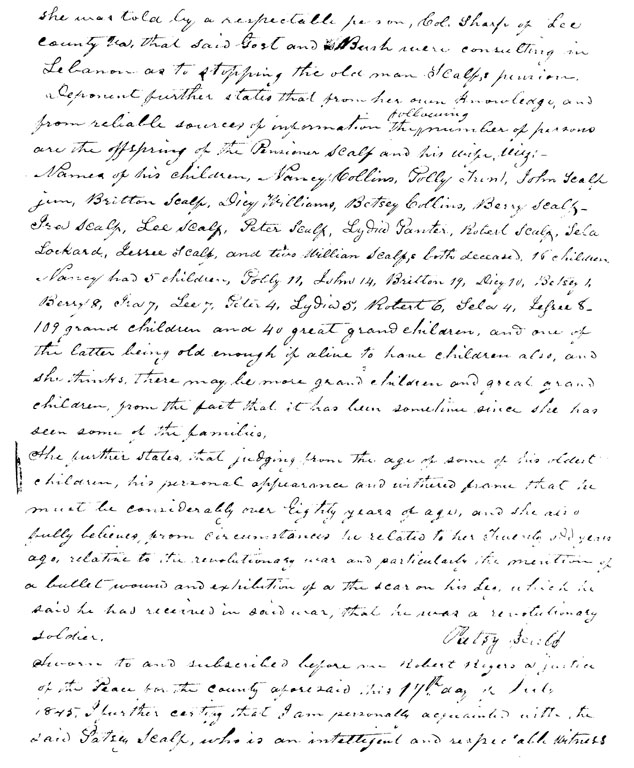 she was told by a respectable person, Col. Sharp of Lee
county Va, that said Gost and Bush were consulting in
Lebanon as to stopping the old man Scalf,s pension.
Deponent further states that from her own knowledge, and
following
from reliable sources of information the number of persons
are the offspring of the Pensioner Scalf and his wife, Viz:-
Names of his children, Nancy Collins, Polly, John Scalf
jun, Britton Scalf, Dicy Williams, Betsey Collins, Berry Scalf-
Ira Scalf, Lee Scalf, Peter Scalf, Lydia Panter, Robert Scalf, Sela
Lockard, Jessee Scalf, and two William Scalfs both deceased. 16 children
Nancy had 5 children, Polly 11, John 14, Britton 19, Dicy 10, Betsey 1,
Berry 8, Ira 7, Lee 7, Peter 4, Lydia 5, Robert 6, Sela 4, Jessee 8-
109 grand children and 40 great grandchildren, and one of
the latter being old enough if alive to have children also, and
she thinks, there may be more grand children and great grand
children, from the fact that it has been sometime since she has
seen some of the families,
She further states, that judging from the age of some of his oldest
children, his personal appearance and withered frame that he
must be considerably over Eighty years of age, and she also
fully believes, from circumstances he related to her Twenty odd years
ago, relative to the revolutionary war and particularly the mention of
a bullet wound and exhibition of a the scar on his Leg, which he
said he had received in said war, that he was a revolutionary
soldier. Patsy Scalf
Sworn to and subscribed before me Robert Rogers a justice
of the Peace for the county aforesaid this 17th day of July
1845. I further certify that I am personally acquainted with the
said Patsey Scalf, who is an intelligent and respectable witness